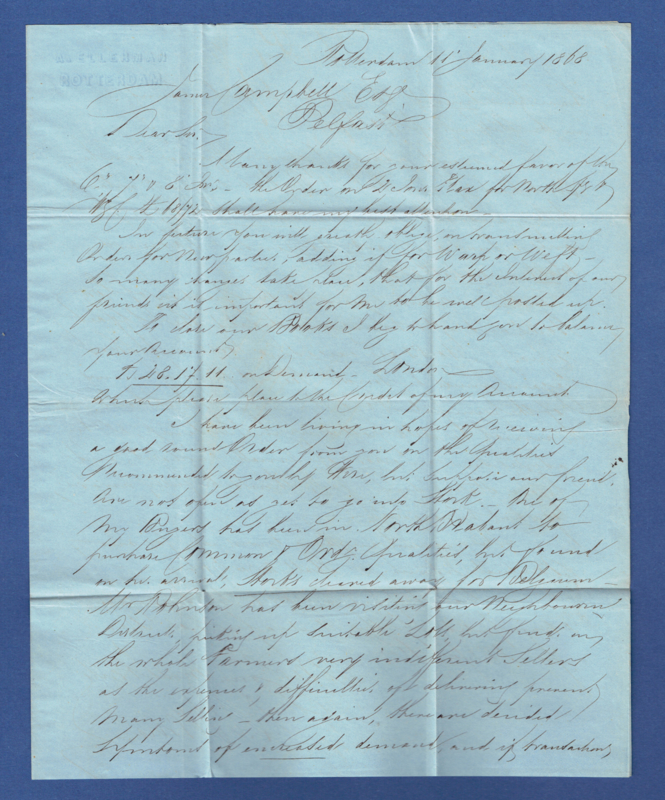 Rotterdam 11 January 1868
James Campbell Esq
Belfast
Dear Sir,
Many thanks for your esteemed favor of the
the Order on Flax for North
shall have my best attention
In future you will greatly oblige on transmitting
Orders for New parties, adding if for Warp or Weft –
so many changes take place, that for the interest of our
friends it is important for me to be well posted up.
To close our Books I beg to hand you to balance
your Account
£ 48.17.11 on Demand – London
which please place to the Credit of my Account
I have been living in hopes of receiving
a good round Order from you on the Qualities
Recommended to yourself Here, but suppose our friends
are not open as yet to go into Stock – One of
My Buyers has been in North Brabant to
purchase Common & Ordy. Qualities, but found
on his arrival, Stocks cleared away for Belgium –
Mr Robinson has been visiting our Neighbouring
Districts, picking up suitable Lots, but finds on
the whole Farmers very indifferent Sellers
as the expenses & difficulties of delivering prevent
Many Sellers – then again, there are decided
Symptoms of increased demand, and if transactions,